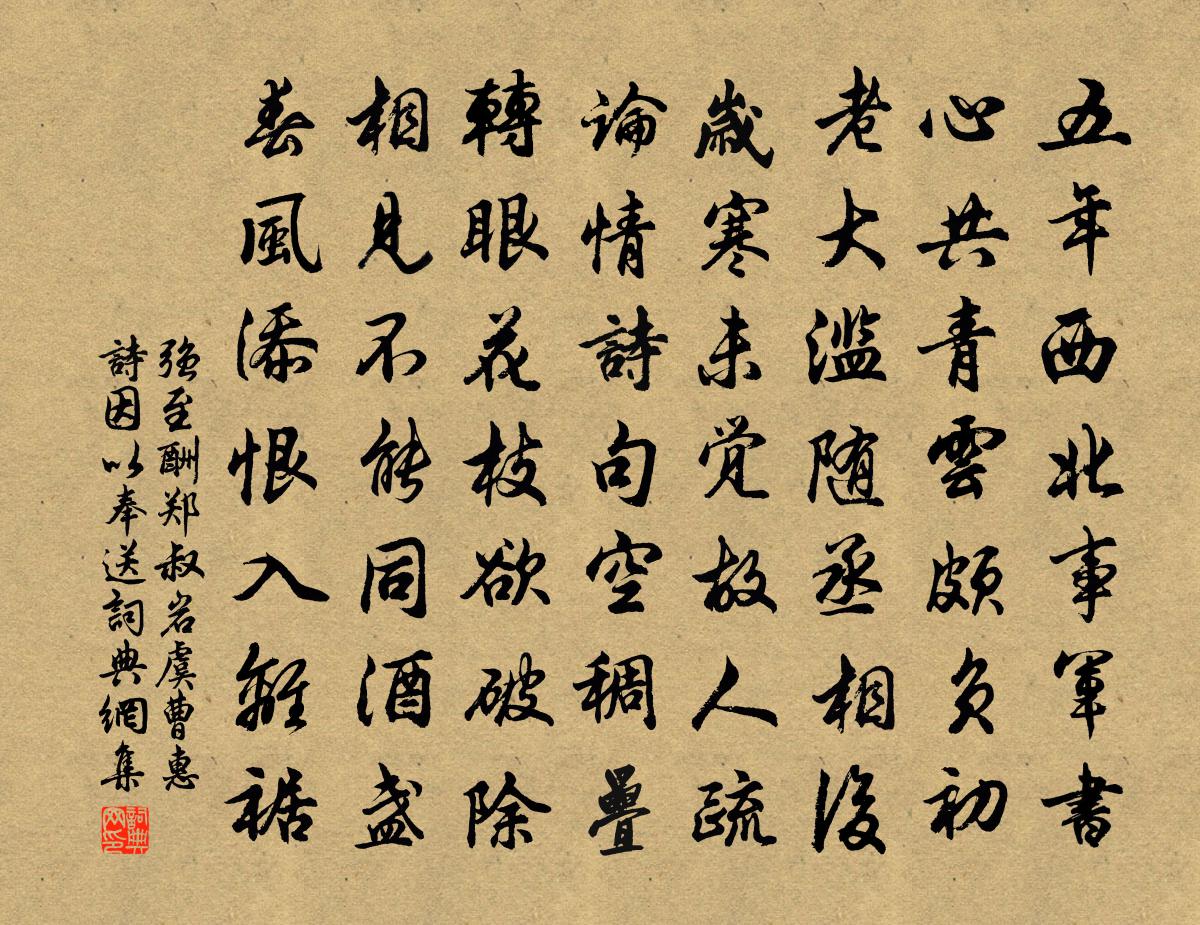 五年西北事軍書
心共青雲頗負初
老大濫随丞相後
歲寒未覚故人疏
論情詩句空稠疊
轉眼花枝欲破除
相見不能同酒盏
春風添恨入離裾
強至酬郑叔岩虞曹惠
詩因以奉送詞典網集
詞典网印